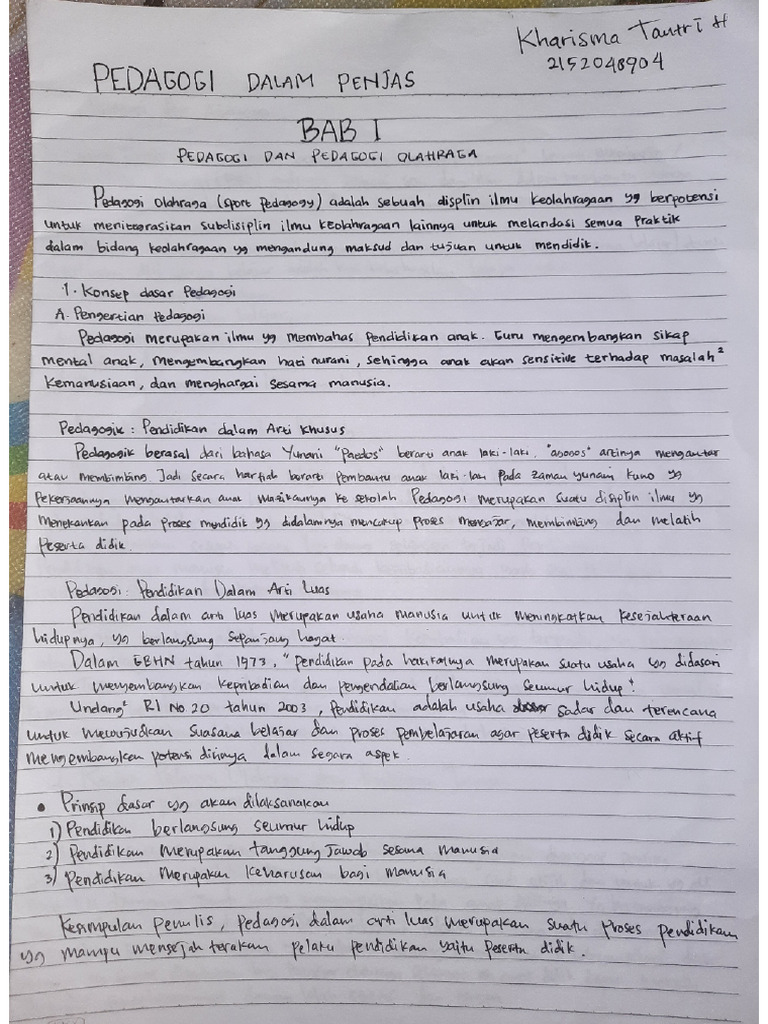 Kharisma Tantri H
2152048904
PEDAGOGI DALAM PENJAS
BAB I
PEDAGOGI DAN PEDAGOGI OLAHRAGA
Pedagogi olahraga (sport Pedagogy) adalah sebuah displin ilmu keolahragaan yg berpotensi
untuk menitegrasikan subdisiplin ilmu keolahragaan lainnya untuk melandasi semua praktik
dalam bidang keolahragaan yg mengandung maksud dan tujuan untuk mendidik.
1. Konsep dasar Pedagogi
A. Pengertian Pedagogi
Pedagogi merupakan ilmu yg membahas pendidikan anak. Guru mengembangkan sikap
mental anak, mengembangkan hati nurani, sehingga anak akan sensitive terhadap masalah²
kemanusiaan, dan menghargai sesama manusia.
Pedagogik : Pendidikan dalam Arti khusus
Pedagogik berasal dari bahasa Yunani "Paedos" berarti anak laki-laki, "agogos" artinya mengantar
atau membimbing. Jadi secara harfiah berarti pembantu anak laki-laki pada zaman yunani kuno yg
pekerjaannya mengantarkan anak majikannya ke sekolah. Pedagogi merupakan suatu disiplin ilmu yg
menekankan pada proses mendidik yg didalamnya mencakup proses mengajar, membimbing dan melatih
peserta didik.
Pedagogi : Pendidikan Dalam Arti Luas
Pendidikan dalam arti luas merupakan usaha manusia untuk meningkatkan kesejahteraan
hidupnya, yg berlangsung sepanjang hayat.
Dalam GBHN tahun 1973, "pendidikan pada hakikatnya merupakan suatu usaha yg didasari
untuk mengembangkan kepribadian dan pengendalian berlangsung seumur hidup".
Undang² RI No.20 tahun 2003, pendidikan adalah usaha sadar dan terencana
untuk mewujudkan suasana belajar dan proses pembelajaran agar peserta didik secara aktif
mengembangkan potensi dirinya dalam segara aspek.
• Prinsip dasar yg akan dilaksanakan
1) Pendidikan berlangsung seumur hidup
2) Pendidikan merupakan tanggung jawab sesama manusia
3) Pendidikan merupakan keharusan bagi manusia
Kesimpulan penulis, pedagogi dalam arti luas merupakan suatu proses pendidikan
yg mampu mensejahterakan pelaku pendidikan yaitu peserta didik.